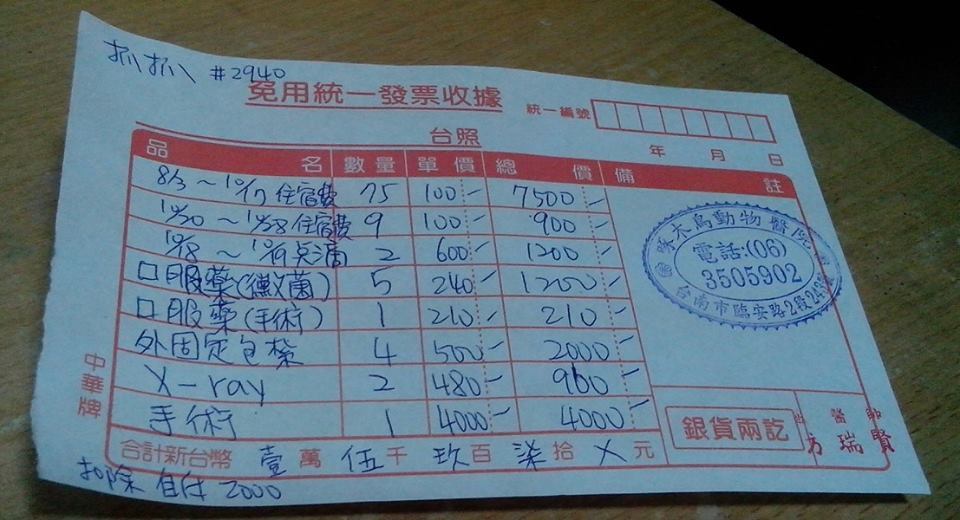 抓抓 #2940
免用統一發票收據
統一編號
台照
年 月 日
品名 數量 單價 總價 備註
8/3 ~ 10/17 住宿費 75 100 7500
10/20 ~ 10/28 住宿費 9 100 900
10/18 ~ 10/19 点滴 2 600 1200
口服藥(黴菌) 5 240 1200
口服藥(手術) 1 210 210
外固定包紮 4 500 2000
X-ray 2 480 960
手術 1 4000 4000
木鳥動物醫院
電話:(06)
3505902
台南市臨安路2段
銀貨兩訖
醫師
方瑞賢
合計新台幣 壹萬 伍千 玖百 柒拾 X元
中華牌
扣除 自付 2000